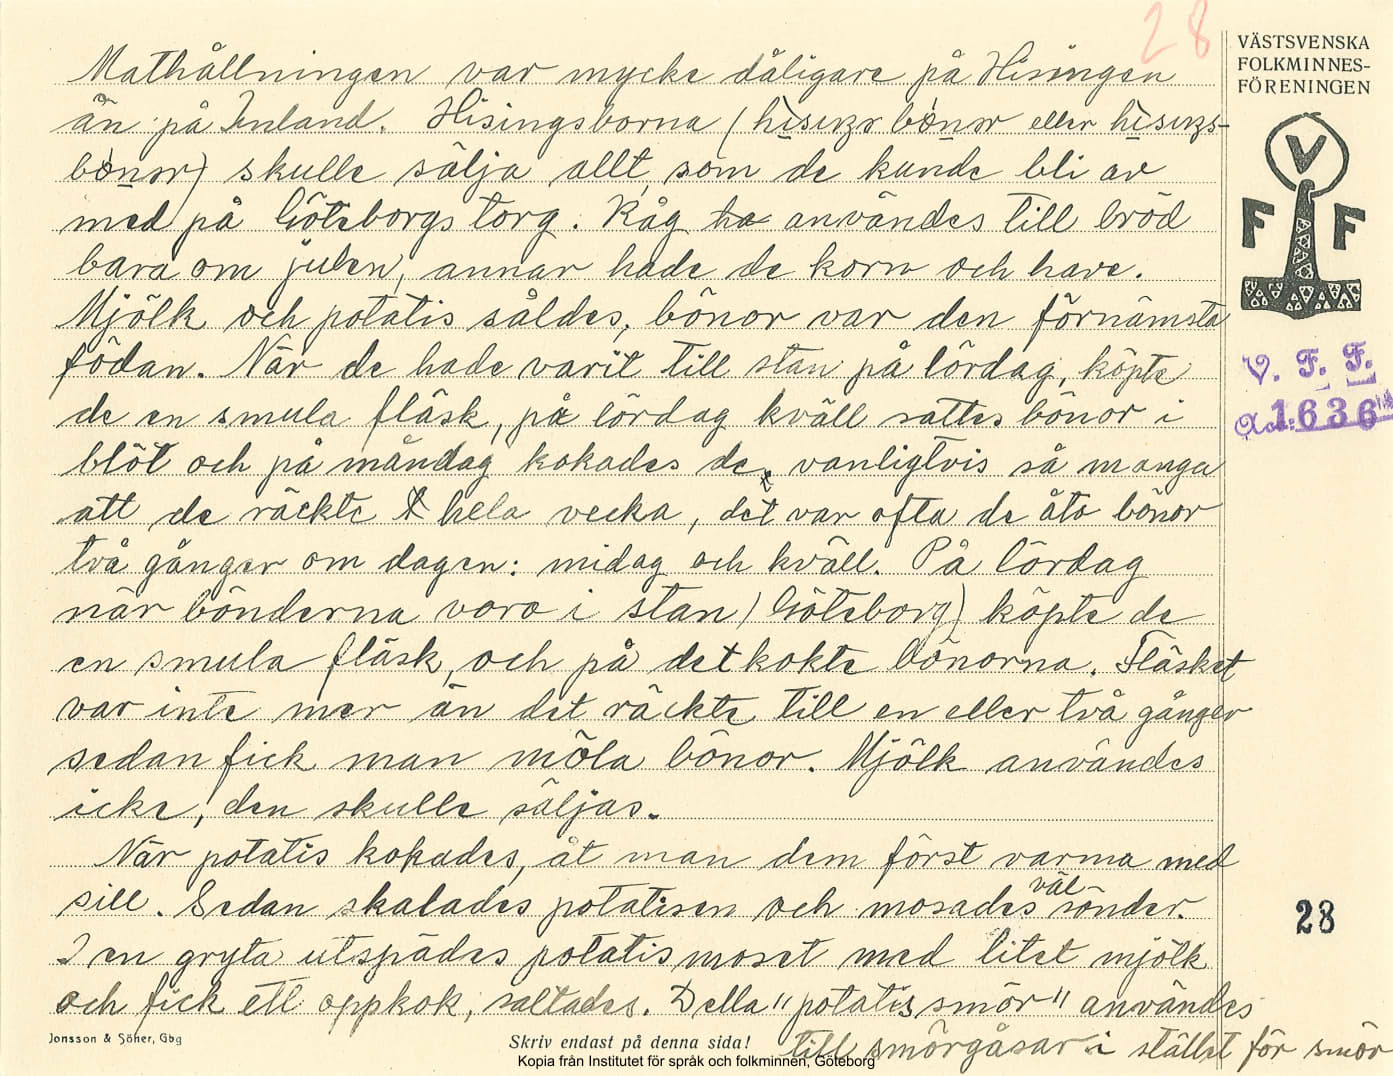 28
VÄSTSVENSKA
FOLKMINNES-
FÖRENINGEN
V
F F
V. F. F.
Acc: 1636
28
Mathållningen var mycke dåligare på Hisingen
än på Inland. Hisingsborna ( eller
skulle sälja allt, som de kunde bli av
med på Göteborgs torg. Råg ha användes till bröd
bara om julen, annar hade de korn och havre.
Mjölk och potatis såldes, bönor var den förnämsta
födan. När de hade varit till stan på lördag, köpte
de en smula fläsk, på lördag kväll sattes bönor i
blöt och på måndag kokades de, vanligtvis så manga
att de räckte hela vecka, det var ofta de åto bönor
två gånger om dagen: midag och kväll. På lördag
när bönderna voro i stan (Göteborg) köpte de
en smula fläsk, och på det kokte bönorna. Fläsket
var inte mer än det räckte till en eller två gånger
sedan fick man möla bönor. Mjölk användes
icke, den skulle säljas.
När potatis kokades, åt man dem först varma med
sill. Sedan skalades potatisen och mosades väl sönder.
I en gryta utspädes potatismoset med litet mjölk
och fick ett oppkok, saltades. Della "potatissmör" användes
till smörgåsar i stället för smör
Jonsson & Söher, Gbg
Skriv endast på denna sida!
Kopia från Institutet för språk och folkminnen, Göteborg